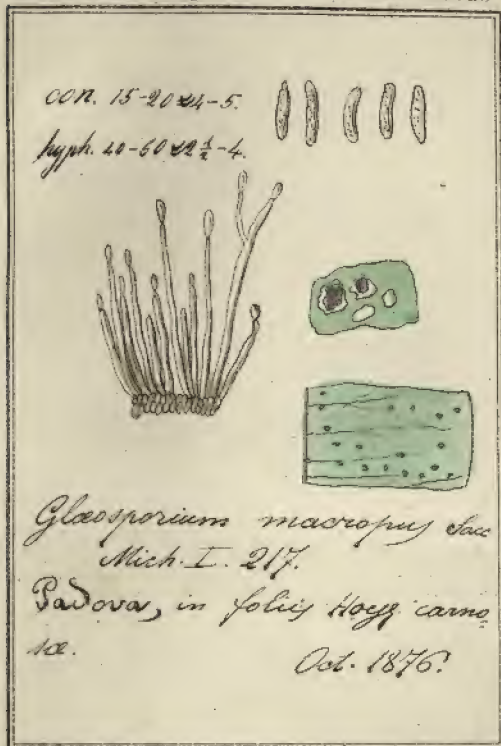 con. 15-20≈4-5.
hyph. 40-60≈2½-4.
Glœosporium macropus Sacc
Mich. I. 217.
Padova, in foliis Hoyæ carno-
sæ.
Oct. 1876.